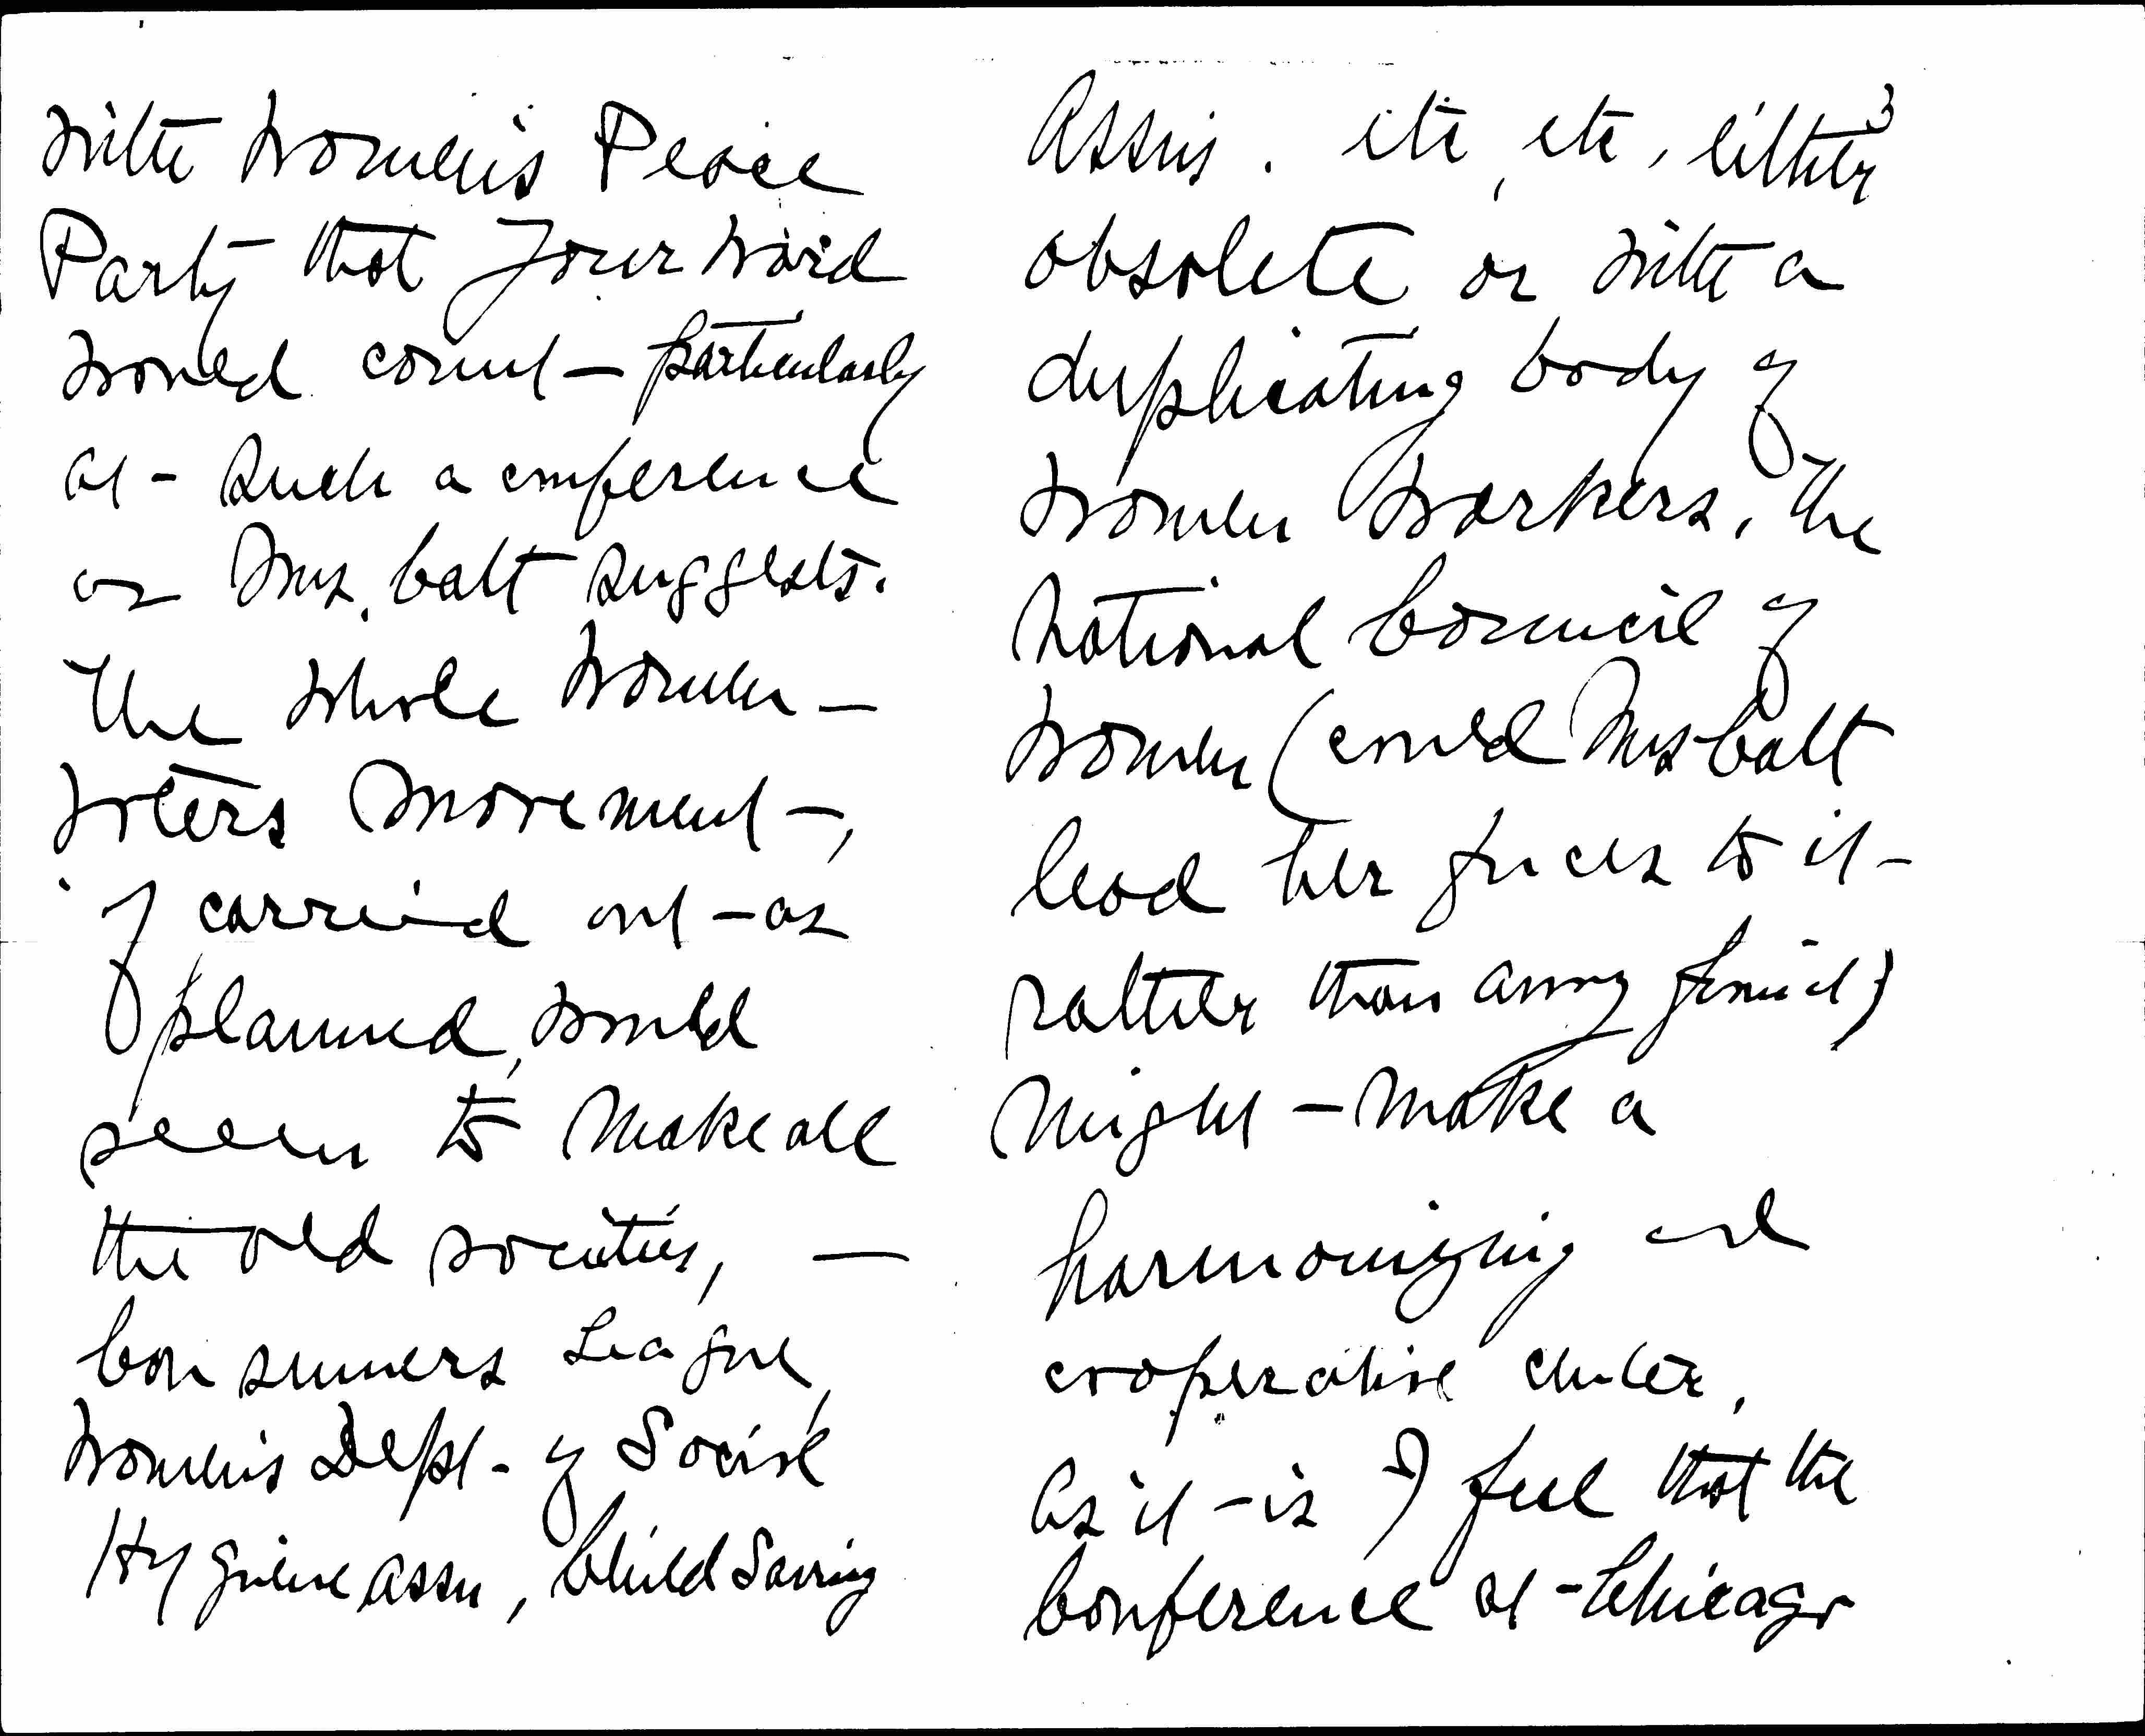 with Women's Peace
Party that your word
would count – particularly
at – such a conference
as Mrs. Catt suggests.
The whole Women –
Voters Movement –,
if carried out – as
planned, would
seem to make all
the old societies, –
Consumers League,
Women's Dept. of Social
Hygiene Assn, Child Saving
3
Assns. etc, etc, either
obsolete or with a
duplicating body of
women workers. The
National Council of
Women (could Mrs Catt
lead her forces to it –
rather than away from it)
might – make a
harmonizing and
cooperative center.
As it – is I feel that the
Conference at – Chicago